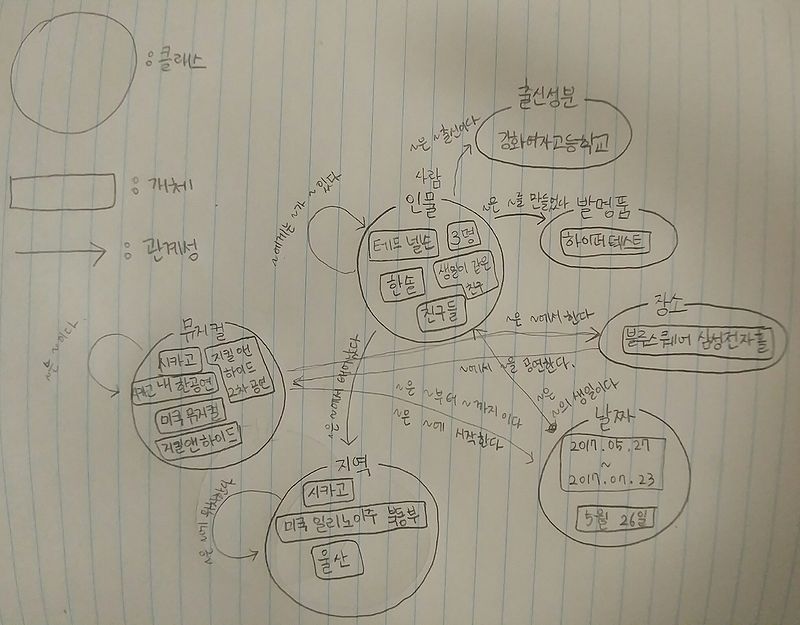 : 클래스
: 개체
: 관계성
출신성분
강화여자고등학교
~은 ~출신이다
사람
인물
테드 넬슨
3명
한솔
생일이 같은
친구
친구들
~에게는 ~가 ~있다
~은 ~를 만들었다
발명품
하이퍼텍스트
장소
블루스퀘어 삼성전자홀
~은 ~에서 한다
~에서 ~을 공연한다.
~은
~의 생일이다
날짜
2017.05.27
~
2017.07.23
5월 26일
~은 ~부터 ~까지이다
~은 ~에 시작한다
뮤지컬
시카고
지킬앤
하이드
2차 공연
내한공연
미국 뮤지컬
지킬앤하이드
~은 ~이다.
~은 ~에서 태어났다
지역
시카고
미국 일리노이주 북동부
울산
~은 ~에 위치한다